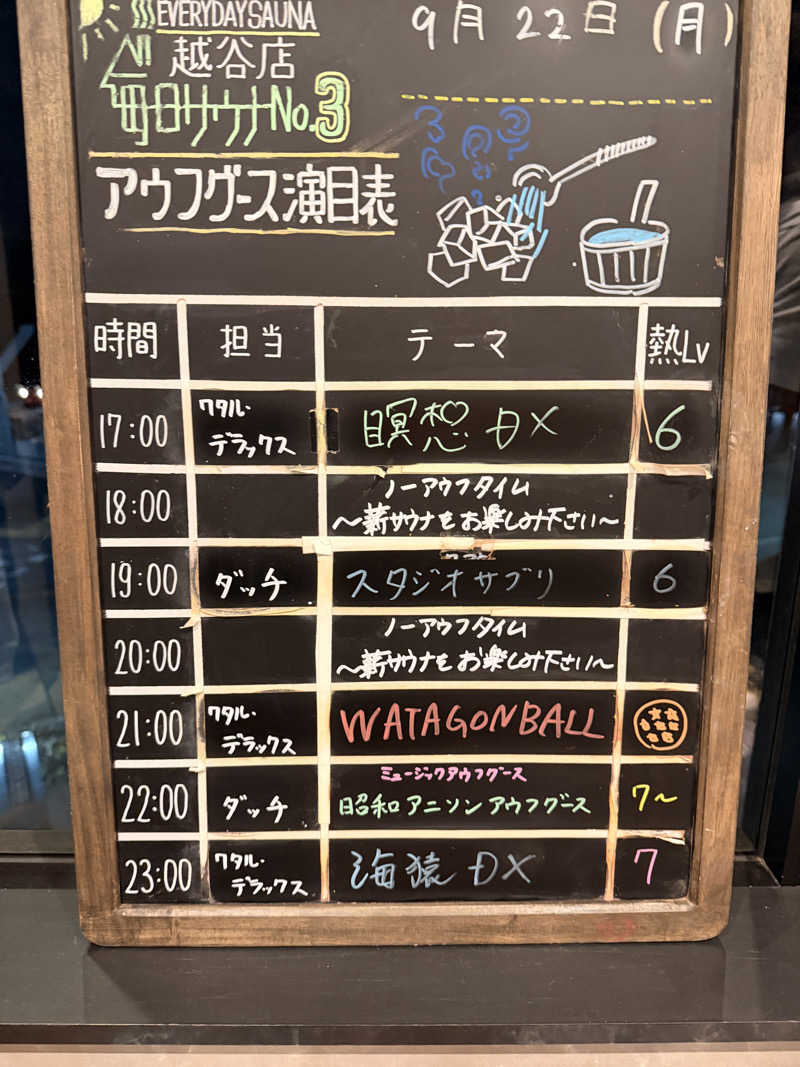 EVERYDAY SAUNA
越谷店
毎日サウナNo.3
アウフグース演目表
9月22日(月)
時間 担当 テーマ 熱Lv
17:00 ワタル・デラックス 瞑想DX 6
18:00 ノーアウフタイム
～薪サウナをお楽しみ下さい～
19:00 ダッチ スタジオサブリ 6
20:00 ノーアウフタイム
～薪サウナをお楽しみ下さい～
21:00 ワタル・デラックス WATAGONBALL
ミュージックアウフグース
22:00 ダッチ 昭和アニソンアウフグース 7～
23:00 ワタル・デラックス 海猿DX 7